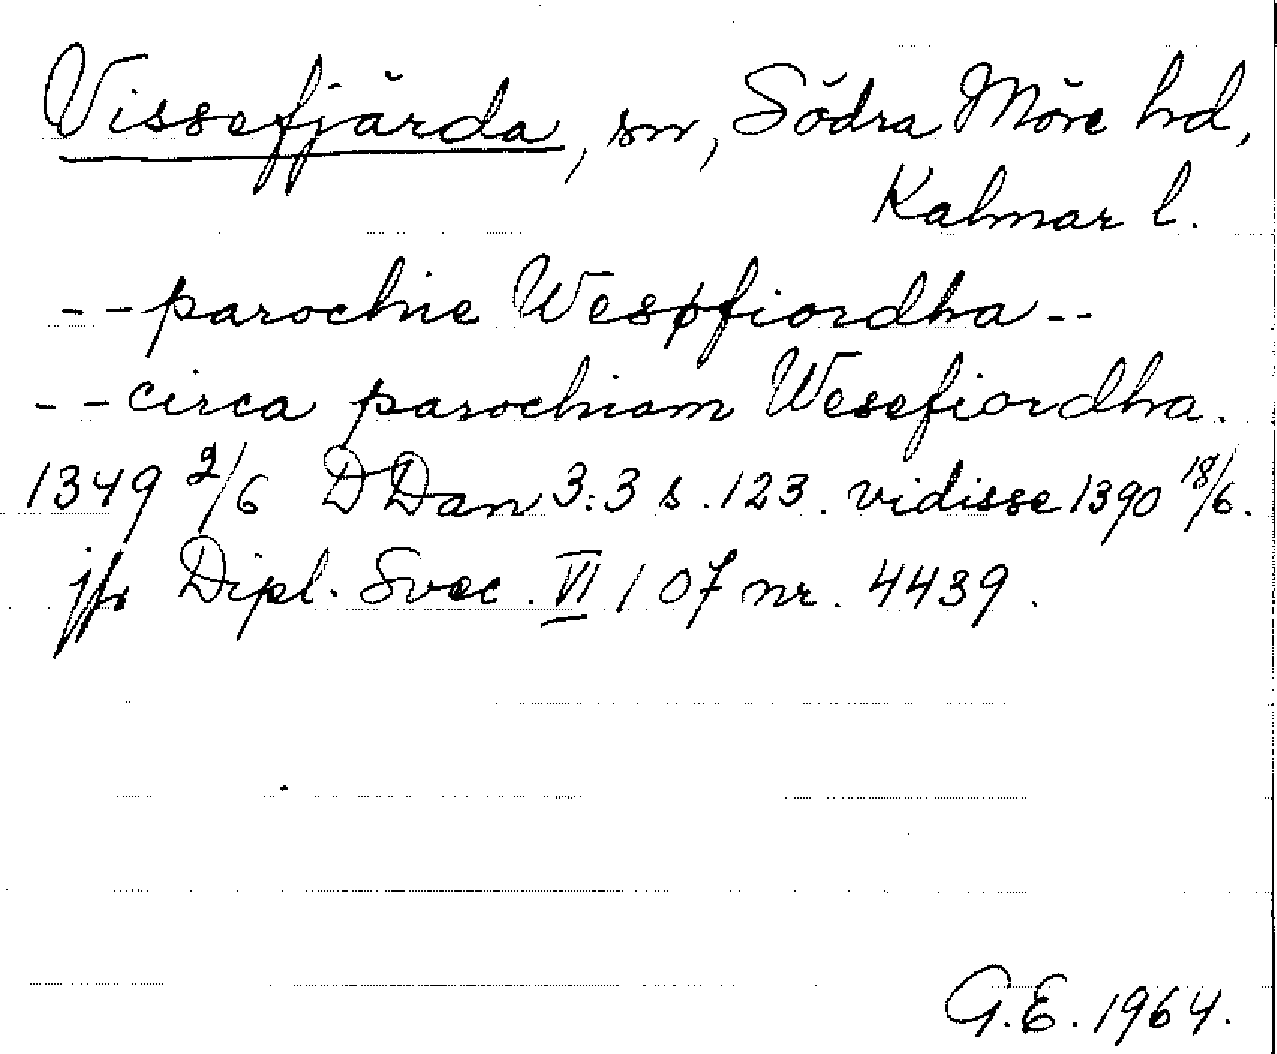 Vissefjärda, sn, Södra Möre hd,
Kalmar l.
--parochie Wesøfiordha--
--circa parochiam Wesefiordha.
1349 2/6 DDan 3:3 s. 123. vidisse 1390 18/6.
jfr Dipl. Svec. VI 107 nr. 4439.
G.E. 1964.